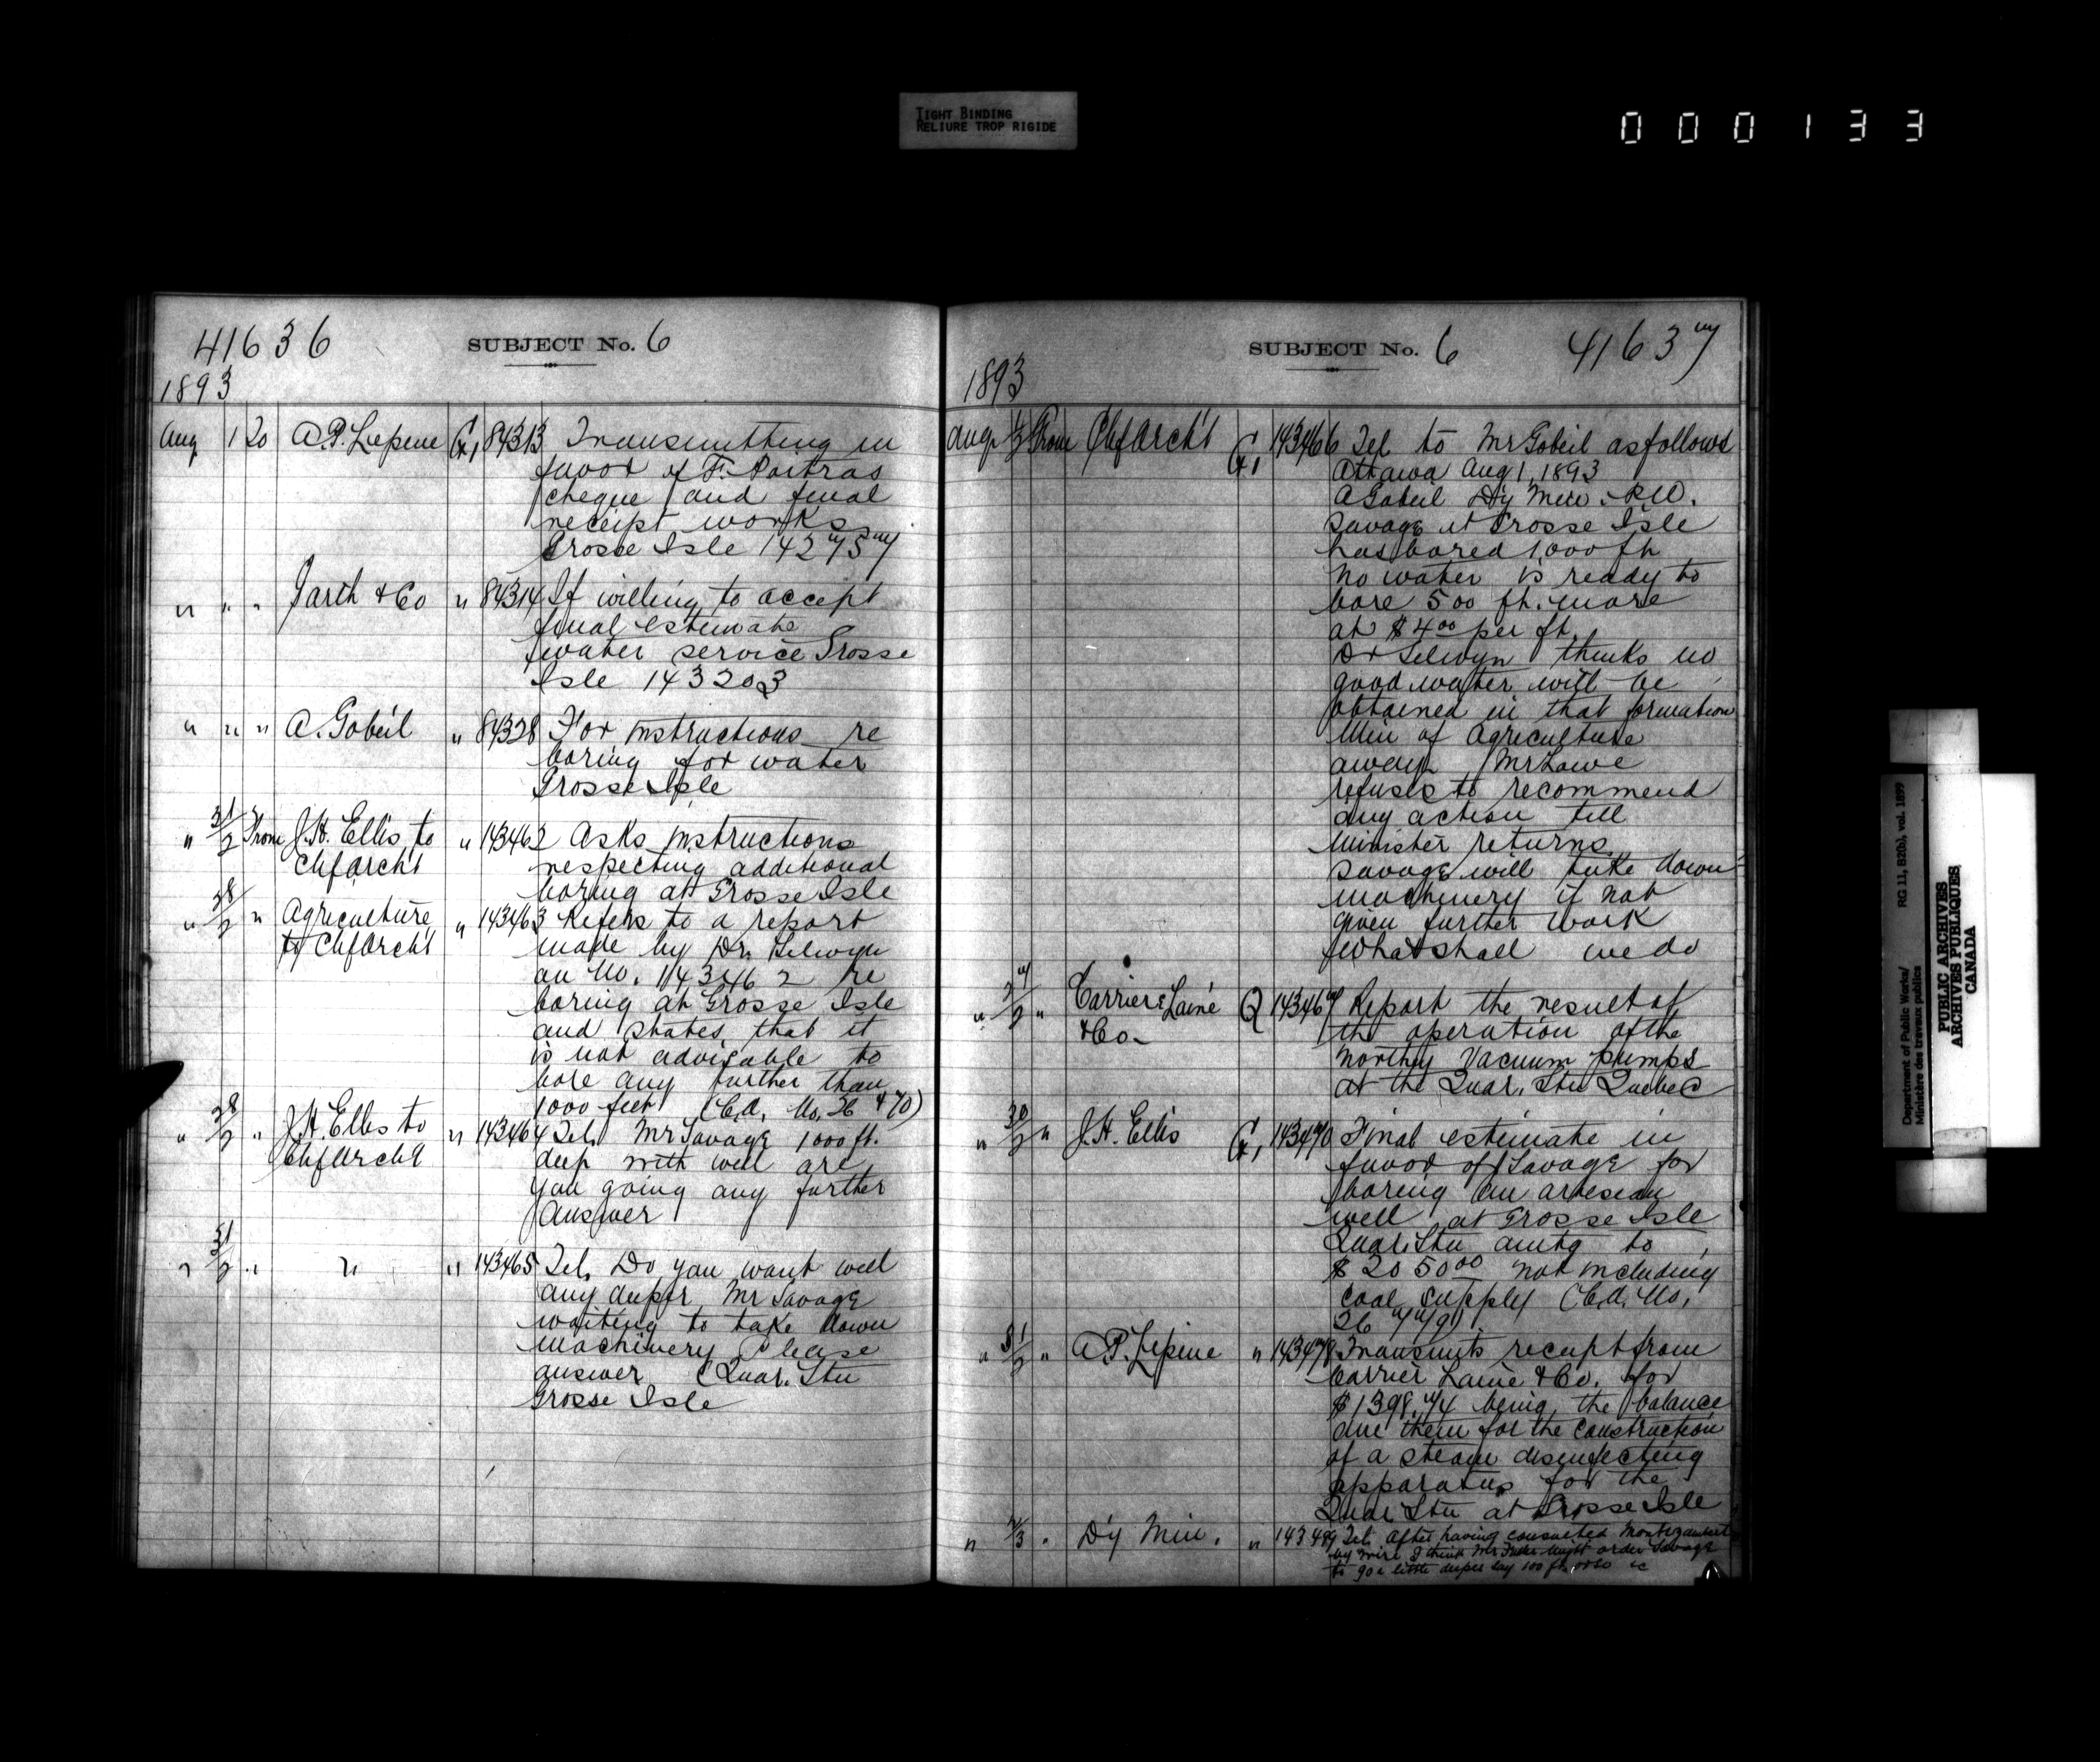 TIGHT BINDING
RELIURE TROP RIGIDE
000133
41636
SUBJECT No. 6
1893
Aug 1 20 A.P. Lepine G, 84313 Transmitting in
favor of F. Poitras
cheque and final
receipt works
Grosse Isle 142757
" " " Garth & Co " 84314 If willing to accept
final estimate
water service Grosse
Isle 143203
" " " A. Gobeil " 84328 For instructions re
boring for water
Grosse Isle
" 31/2 From J.H. Ellis to " 143462 Asks instructions
Chf Archt respecting additional
boring at Grosse Isle
" 28/2 " Agriculture " 143463 Refers to a report
to Chf Archt made by Dr. Selwyn
on No. 143462 re
boring at Grosse Isle
and states that it
is not advisable to
bore any further than
1000 feet (C.A. No. 26 & 70)
" 28/2 " J.H. Ellis to " 143464 Tel. Mr Savage 1000 ft.
Chf Archt deep with well are
you going any further
Answer
" 31/2 " " " 143465 Tel. Do you want well
any deeper Mr Savage
waiting to take down
machinery Please
answer (Quar. Stn
Grosse Isle
SUBJECT No. 6
41637
1893
Aug 1/2 From Chf Archt G, 143466 Tel to Mr Gobeil as follows
Ottawa Aug 1, 1893
A Gobeil Dy Min. P.W.
Savage at Grosse Isle
has bored 1000 ft
no water is ready to
bore 500 ft. more
at $4.00 per ft.
Dr Selwyn thinks no
good water will be
obtained in that formation
Min of Agriculture
away Mr Lowe
refuses to recommend
any action till
minister returns
Savage will take down
machinery if not
given further work
What shall we do
" 27/2 " Carrier Lainé Q 143467 Report the result of
& Co. the operation of the
Northey Vacuum pumps
at the Quar. Stn Quebec
" 30/2 " J.H. Ellis G, 143470 Final estimate in
favor of Savage for
boring an artesian
well at Grosse Isle
Quar. Stn amtg to
$2050.00 not including
coal supply (C.A. No.
" 31/2 " A.P. Lepine " 143478 Transmits receipt from
Carrier Laine & Co. for
$1398.74 being the balance
due them for the construction
of a steam disinfecting
apparatus for the
Quar Stn at Grosse Isle
" 2/3 " Dy Min. " 143499 Tel. After having consulted Montizambert
by wire I think Mr Fuller might order Savage
to go a little deeper say 100 ft or so
Department of Public Works/
Ministère des travaux publics
RG 11, B2(b), vol. 1899
PUBLIC ARCHIVES
ARCHIVES PUBLIQUES
CANADA